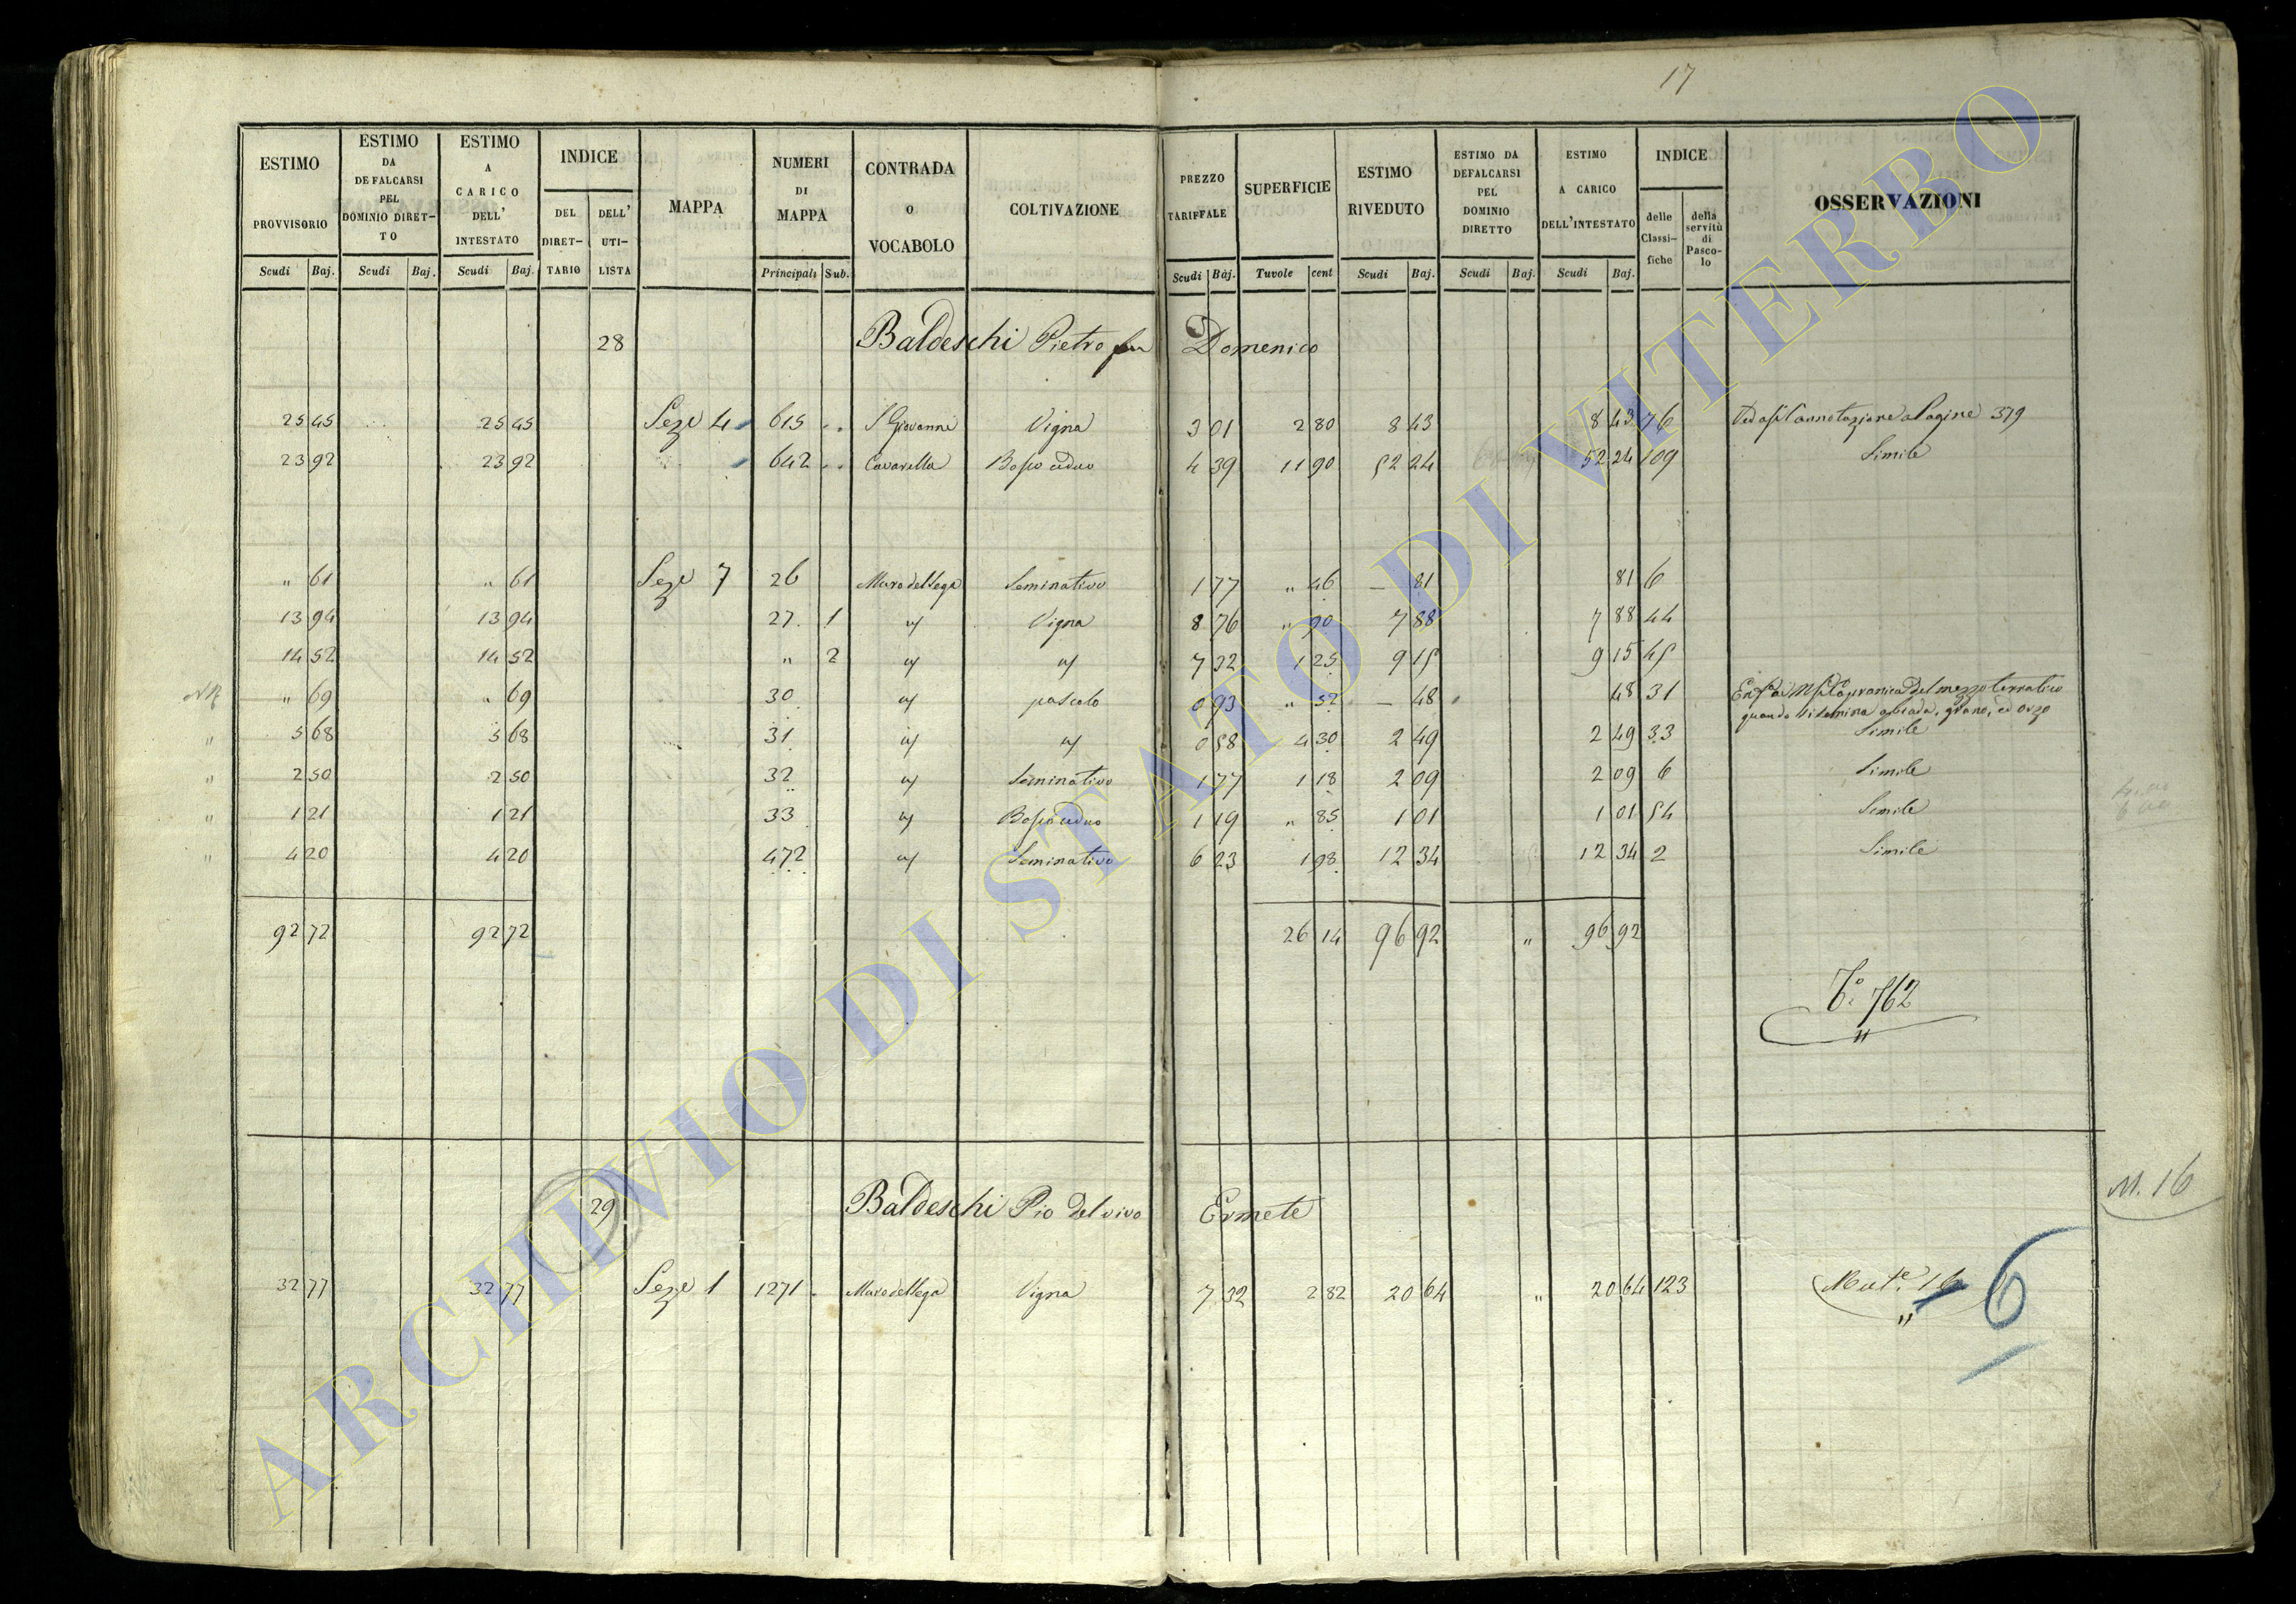 17
ESTIMO PROVVISORIO Scudi Baj. ESTIMO DA DEFALCARSI PEL DOMINIO DIRET-TO Scudi Baj. ESTIMO A CARICO DELL' INTESTATO Scudi Baj. INDICE DEL DIRET-TARIO DELL' UTI-LISTA MAPPA NUMERI DI MAPPA Principali Sub. CONTRADA O VOCABOLO COLTIVAZIONE PREZZO TARIFFALE Scudi Baj. SUPERFICIE Tavole cent ESTIMO RIVEDUTO Scudi Baj. ESTIMO DA DEFALCARSI PEL DOMINIO DIRETTO Scudi Baj. ESTIMO A CARICO DELL'INTESTATO Scudi Baj. INDICE delle Classi-fiche della servitù di Pasco-lo OSSERVAZIONI
28 Baldeschi Pietro fu Domenico
25 45 25 45 Seze 4 615 S Giovanni Vigna 3 01 2 80 8 43 8 43 76 l'annotazione a Pagine 379
23 92 23 92 642 Cavarella Bosco ceduo 4 39 11 90 52 24 52 24 109 Simile
" 61 " 61 Seze 7 26 Muro del lega Seminativo 1 77 " 46 — 81 81 6
13 94 13 94 27 1 Vigna 8 76 " 90 7 88 7 88 44
14 52 14 52 " 2 7 32 1 25 9 15 9 15 45
" 69 " 69 30 pascolo 0 93 " 52 — 48 48 31 del mezzo terratico
quando si semina grano, ed orzo
" 5 68 5 68 31 0 58 4 30 2 49 2 49 33 Simile
" 2 50 2 50 32 Seminativo 1 77 1 18 2 09 2 09 6 Simile
" 1 21 1 21 33 Bosco ceduo 1 19 " 85 1 01 1 01 54 Simile
" 4 20 4 20 472 Seminativo 6 23 1 98 12 34 12 34 2 Simile
92 72 92 72 26 14 96 92 " 96 92
762
"
M. 16
29 Baldeschi Pio del vivo Ermete
32 77 32 77 Seze 1 1271 Muro del lega Vigna 7 32 2 82 20 64 " 20 64 123 Mut.e 16 6
"
ARCHIVIO DI STATO DI VITERBO